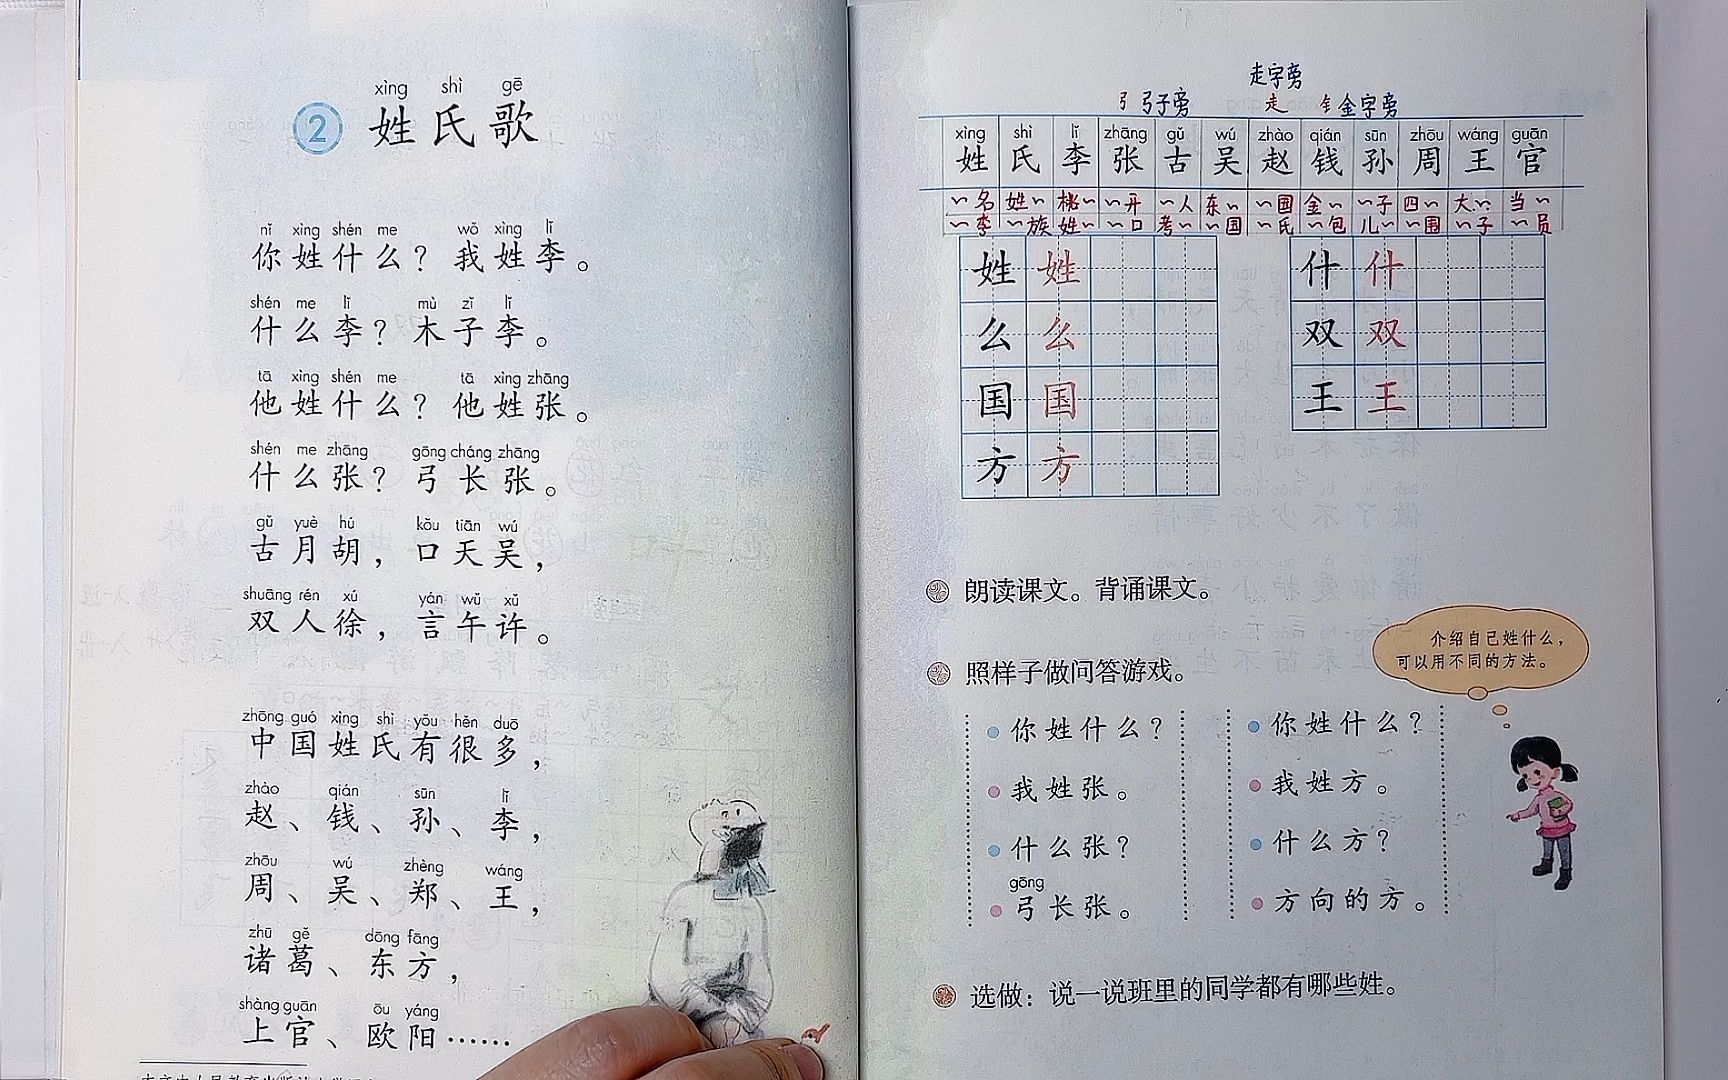 xìng shì gē
2 姓氏歌
nǐ xìng shén me wǒ xìng lǐ
你姓什么？我姓李。
shén me lǐ mù zǐ lǐ
什么李？木子李。
tā xìng shén me tā xìng zhāng
他姓什么？他姓张。
shén me zhāng gōng cháng zhāng
什么张？弓长张。
gǔ yuè hú kǒu tiān wú
古月胡，口天吴，
shuāng rén xú yán wǔ xǔ
双人徐，言午许。
zhōng guó xìng shì yǒu hěn duō
中国姓氏有很多，
zhào qián sūn lǐ
赵、钱、孙、李，
zhōu wú zhèng wáng
周、吴、郑、王，
zhū gě dōng fāng
诸葛、东方，
shàng guān ōu yáng
上官、欧阳……
走字旁
弓 弓子旁 走 钅金字旁
xìng shì lǐ zhāng gǔ wú zhào qián sūn zhōu wáng guān
姓 氏 李 张 古 吴 赵 钱 孙 周 王 官
~名 姓~ 桃~ ~开 ~人 东~ ~国 金~ ~子 四~ 大~ 当~
~李 ~族 姓~ ~口 考~ ~国 ~氏 ~包 儿~ ~围 ~子 ~员
姓 姓 什 什
么 么 双 双
国 国 王 王
方 方
朗读课文。背诵课文。
照样子做问答游戏。
介绍自己姓什么，
可以用不同的方法。
你姓什么？
我姓张。
什么张？
gōng
弓长张。
你姓什么？
我姓方。
什么方？
方向的方。
选做：说一说班里的同学都有哪些姓。